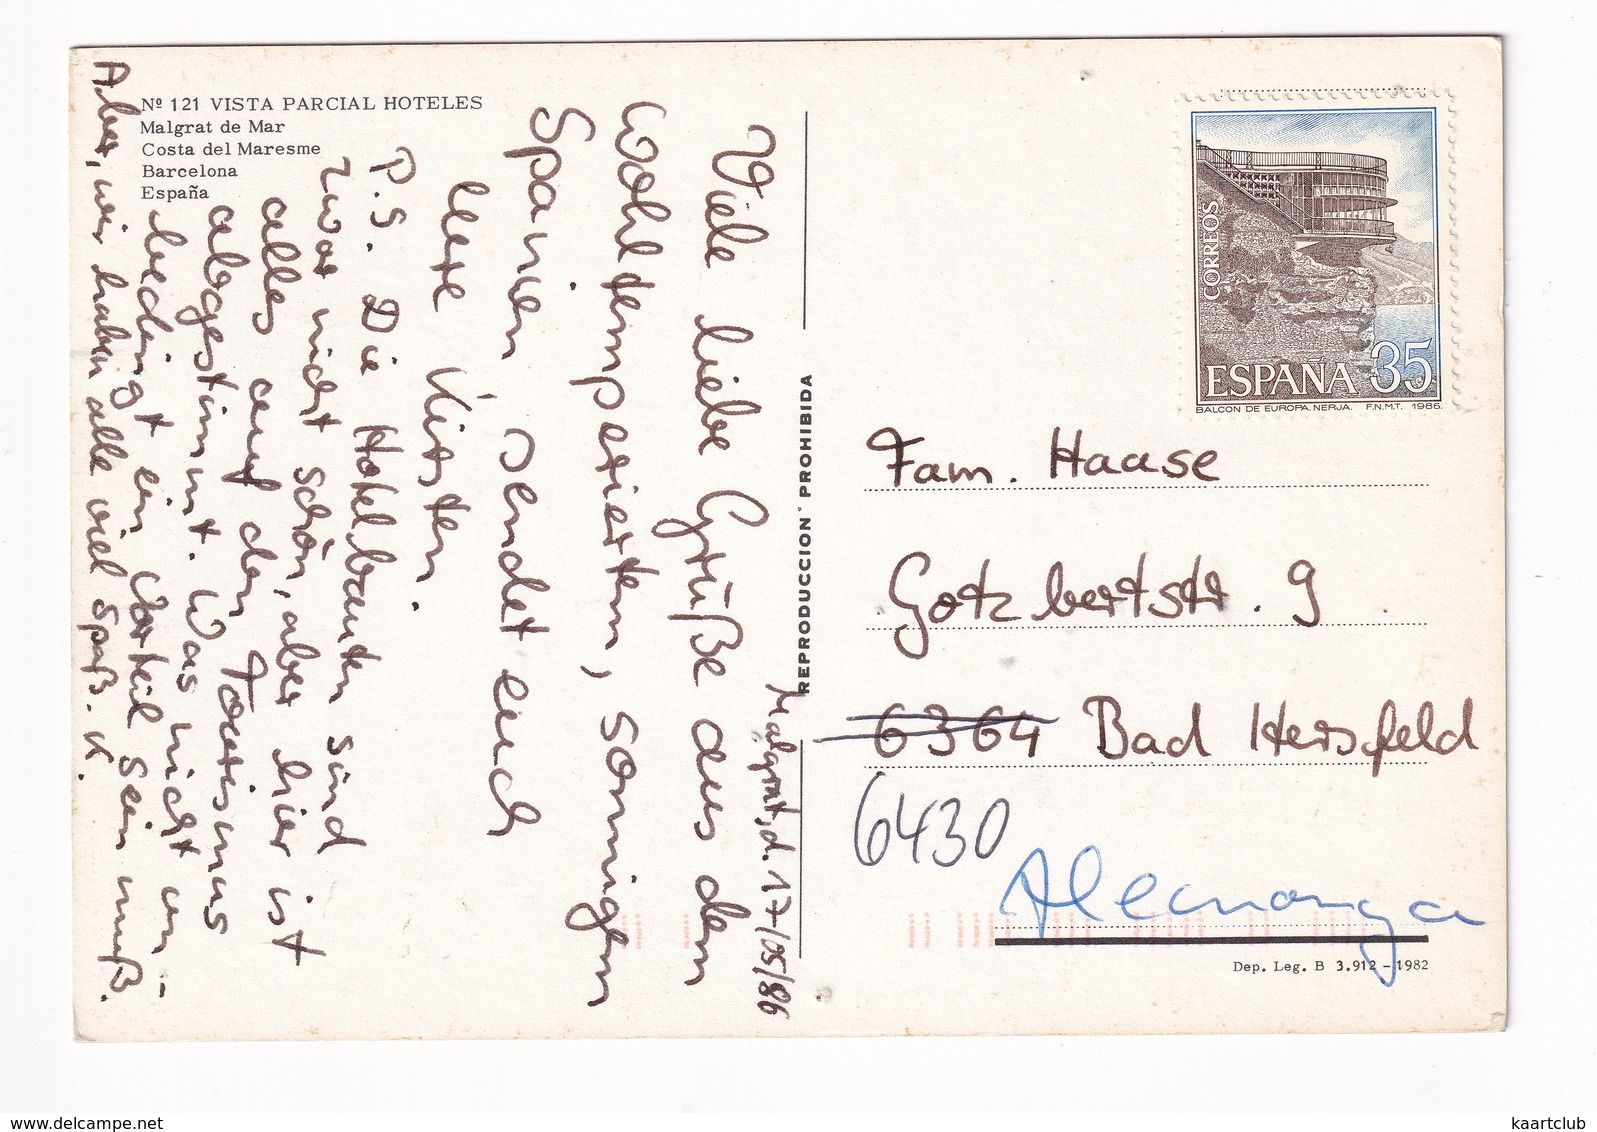 Nº 121 VISTA PARCIAL HOTELES
Malgrat de Mar
Costa del Maresme
Barcelona
España
Malgrat, d. 17/05/86
Viele liebe Grüße aus dem
wohltemperierten, sonnigen
Spanien, sendet euch
eure Kirsten.
P.S. Die Hotelbauten sind
zwar nicht schön, aber hier ist
alles auf den Tourismus
abgestimmt. Was nicht un-
bedingt ein Vorteil sein muß.
Aber, wir haben alle viel Spaß. K.
REPRODUCCION PROHIBIDA
CORREOS
ESPAÑA 35
BALCON DE EUROPA. NERJA. F.N.M.T. 1986.
Fam. Haase
Gotzbertstr. 9
6364 Bad Hersfeld
6430
Alemanya
Dep. Leg. B 3.912 - 1982
kaartclub